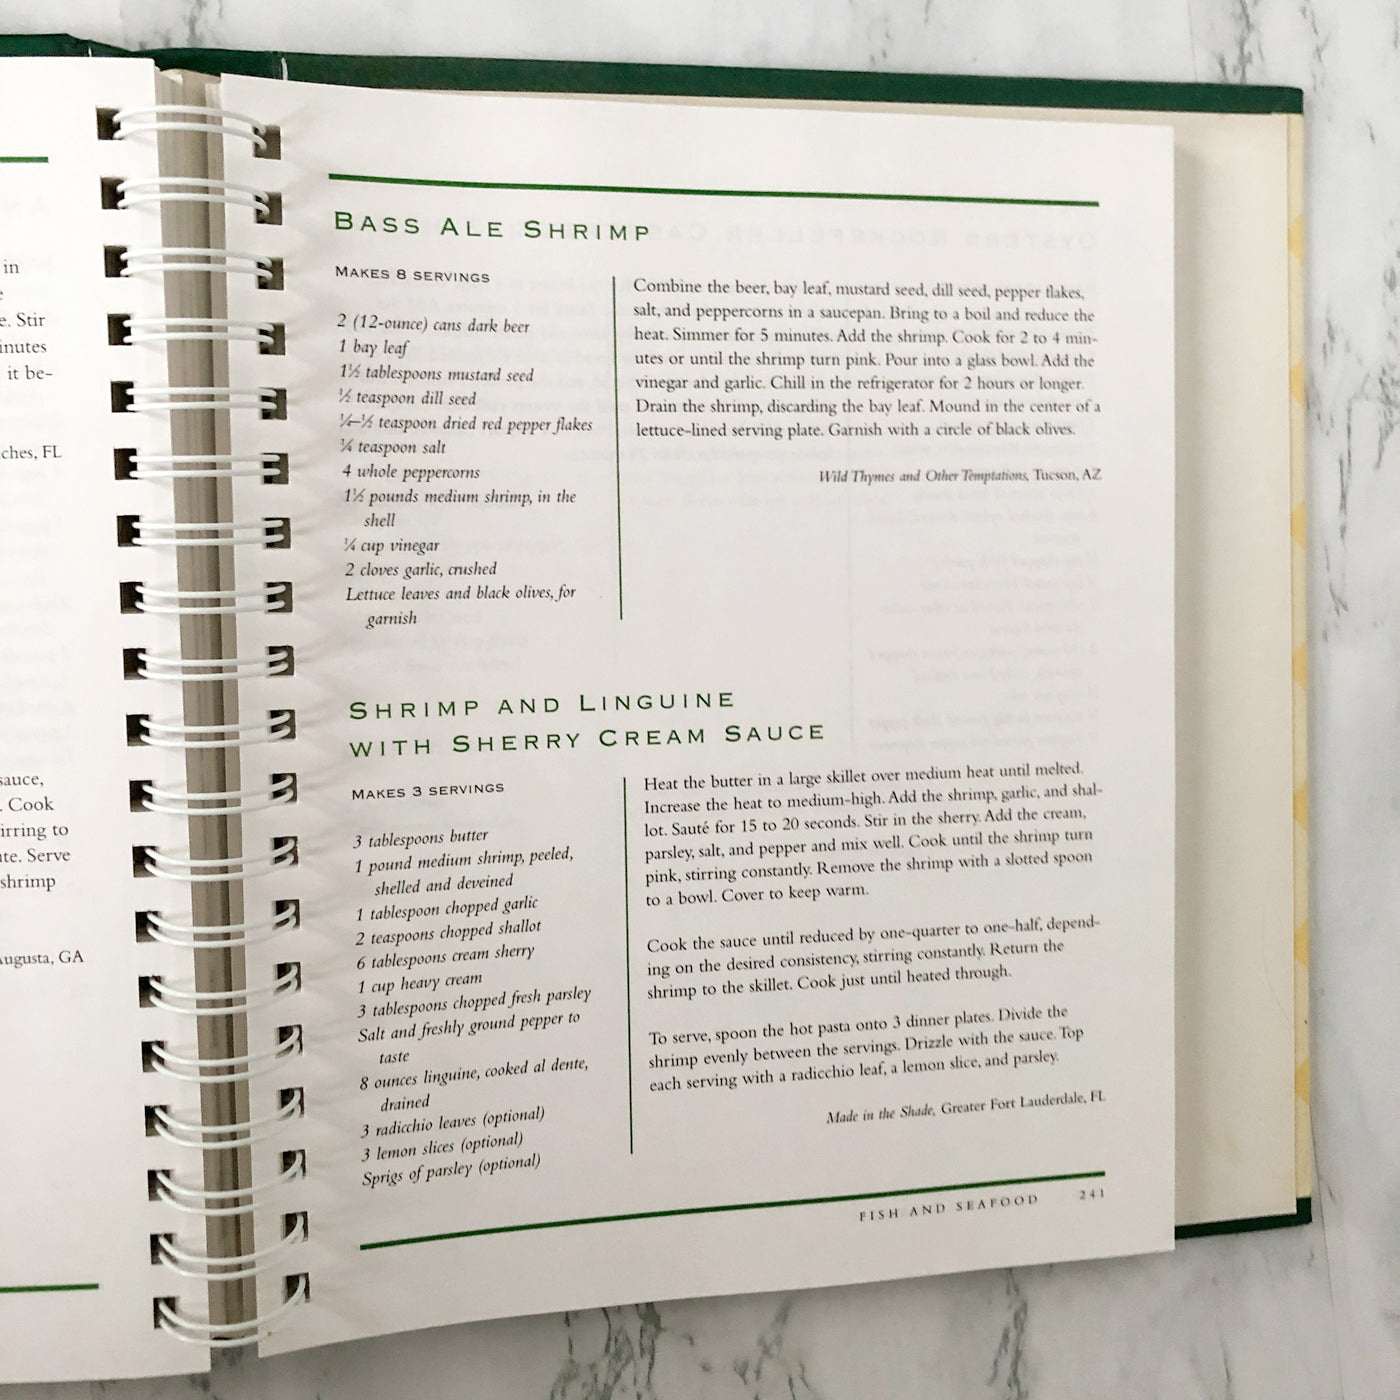 in
e. Stir
inutes
it be-
ches, FL
sauce,
. Cook
irring to
ute. Serve
shrimp
Augusta, GA
BASS ALE SHRIMP
MAKES 8 SERVINGS
2 (12-ounce) cans dark beer
1 bay leaf
1½ tablespoons mustard seed
½ teaspoon dill seed
¼–½ teaspoon dried red pepper flakes
¼ teaspoon salt
4 whole peppercorns
1½ pounds medium shrimp, in the
shell
¼ cup vinegar
2 cloves garlic, crushed
Lettuce leaves and black olives, for
garnish
Combine the beer, bay leaf, mustard seed, dill seed, pepper flakes,
salt, and peppercorns in a saucepan. Bring to a boil and reduce the
heat. Simmer for 5 minutes. Add the shrimp. Cook for 2 to 4 min-
utes or until the shrimp turn pink. Pour into a glass bowl. Add the
vinegar and garlic. Chill in the refrigerator for 2 hours or longer.
Drain the shrimp, discarding the bay leaf. Mound in the center of a
lettuce-lined serving plate. Garnish with a circle of black olives.
Wild Thymes and Other Temptations, Tucson, AZ
SHRIMP AND LINGUINE
WITH SHERRY CREAM SAUCE
MAKES 3 SERVINGS
3 tablespoons butter
1 pound medium shrimp, peeled,
shelled and deveined
1 tablespoon chopped garlic
2 teaspoons chopped shallot
6 tablespoons cream sherry
1 cup heavy cream
3 tablespoons chopped fresh parsley
Salt and freshly ground pepper to
taste
8 ounces linguine, cooked al dente,
drained
3 radicchio leaves (optional)
3 lemon slices (optional)
Sprigs of parsley (optional)
Heat the butter in a large skillet over medium heat until melted.
Increase the heat to medium-high. Add the shrimp, garlic, and shal-
lot. Sauté for 15 to 20 seconds. Stir in the sherry. Add the cream,
parsley, salt, and pepper and mix well. Cook until the shrimp turn
pink, stirring constantly. Remove the shrimp with a slotted spoon
to a bowl. Cover to keep warm.
Cook the sauce until reduced by one-quarter to one-half, depend-
ing on the desired consistency, stirring constantly. Return the
shrimp to the skillet. Cook just until heated through.
To serve, spoon the hot pasta onto 3 dinner plates. Divide the
shrimp evenly between the servings. Drizzle with the sauce. Top
each serving with a radicchio leaf, a lemon slice, and parsley.
Made in the Shade, Greater Fort Lauderdale, FL
FISH AND SEAFOOD 241